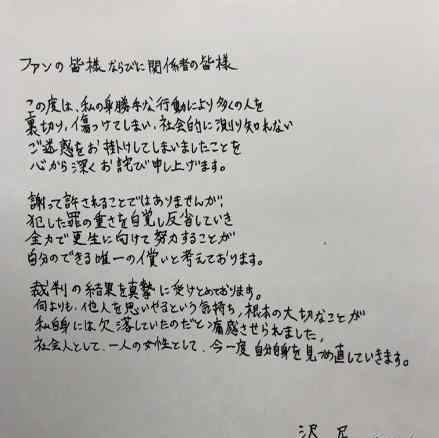 ファンの皆様ならびに関係者の皆様
この度は、私の身勝手な行動により多くの人を
裏切り、傷つけてしまい、社会的に測り知れない
ご迷惑をお掛けしてしまいましたことを
心から深くお詫び申し上げます。
謝って許されることではありませんが、
犯した罪の重さを自覚し反省していき
全力で更生に向けて努力することが
自分のできる唯一の償いと考えております。
裁判の結果を真摯に受けとめております。
何よりも、他人を思いやるという気持ち、根本の大切なことが
私自身には欠落していたのだと痛感させられました。
社会人として、一人の女性として、今一度自分自身を見つめ直していきます。
沢尻